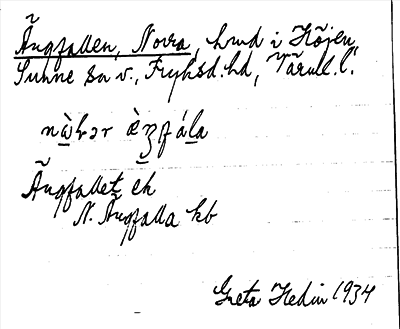 Ängfallen, Norra, hmd i Höjen,
Sunne sn v., Fryksd. hd, Värml. l.
nὼr̀ər æ̀ŋfála
Ängfallet ek
N. Ängfalla kb
Greta Hedin 1934